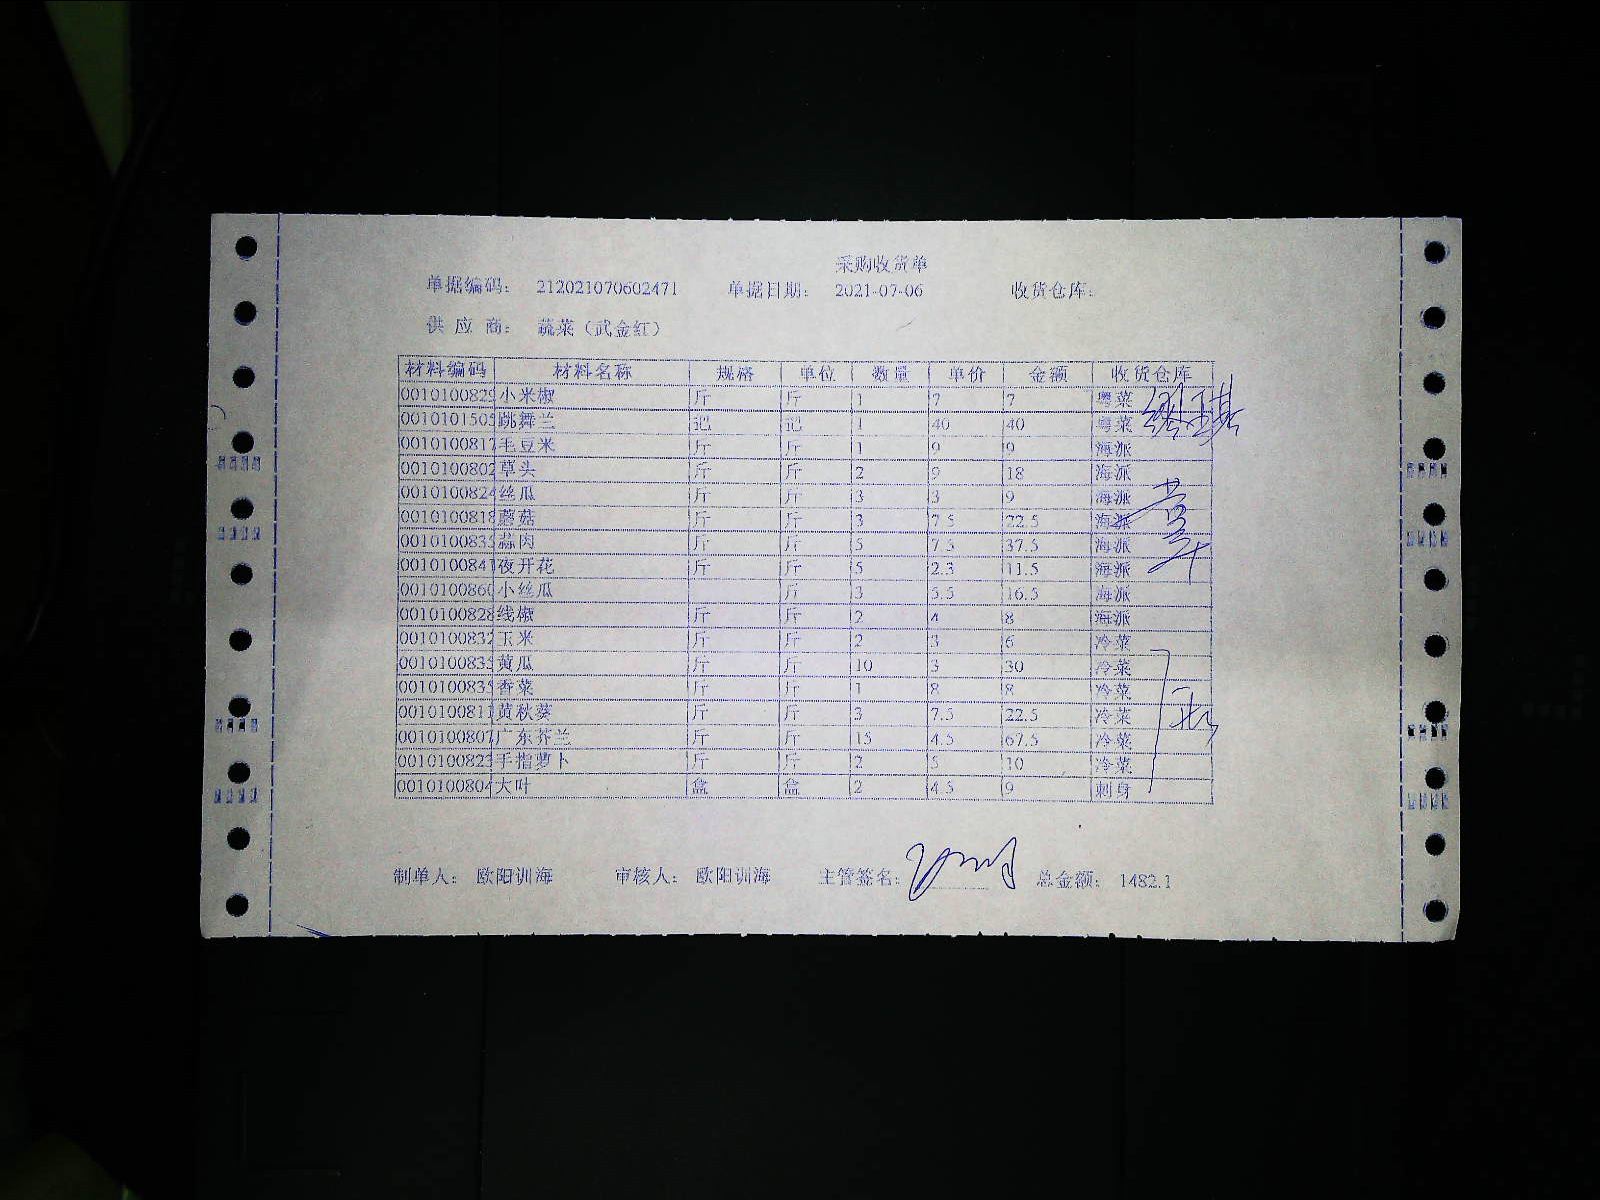 采购收货单
单据编码： 212021070602471 单据日期： 2021-07-06 收货仓库：
供 应 商： 蔬菜（武金红）
材料编码 材料名称 规格 单位 数量 单价 金额 收货仓库
0010100829 小米椒 斤 斤 1 7 7 粤菜
0010101505 跳舞兰 记 记 1 40 40 粤菜
0010100817 毛豆米 斤 斤 1 9 9 海派
0010100802 草头 斤 斤 2 9 18 海派
0010100824 丝瓜 斤 斤 3 3 9 海派
0010100818 蘑菇 斤 斤 3 7.5 22.5 海派
0010100835 蒜肉 斤 斤 5 7.5 37.5 海派
0010100841 夜开花 斤 斤 5 2.3 11.5 海派
0010100860 小丝瓜 斤 3 5.5 16.5 海派
0010100828 线椒 斤 斤 2 4 8 海派
0010100832 玉米 斤 斤 2 3 6 冷菜
0010100835 黄瓜 斤 斤 10 3 30 冷菜
0010100835 香菜 斤 斤 1 8 8 冷菜
0010100811 黄秋葵 斤 斤 3 7.5 22.5 冷菜
0010100807 广东芥兰 斤 斤 15 4.5 67.5 冷菜
0010100823 手指萝卜 斤 斤 2 5 10 冷菜
0010100804 大叶 盒 盒 2 4.5 9 刺身
制单人： 欧阳训海 审核人： 欧阳训海 主管签名： 总金额： 1482.1